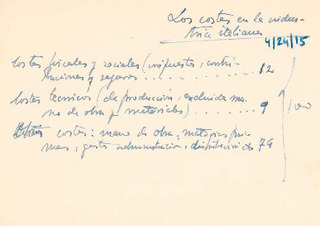 Los costes en la indus-
tria italiana
4/24/15
Costes fiscales y sociales (impuestos, contri-
buciones y seguros . . . . . . . . . . . 12
Costes tecnicos (de producción, excluida ma-
no de obra y materiales) . . . . . . . 9
100
costes: mano de obra, materias pri-
mas, gastos administración, distribución de 79